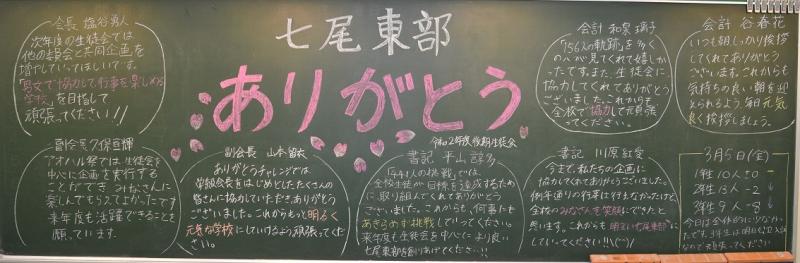 七尾東部
ありがとう
令和2年度後期生徒会
会長 塩谷勇人
次年度の生徒会では
他の委員会と共同企画を
増やしていってほしいです。
で協力して行事を楽しめる
学校」を目指して
頑張ってください!!
副会長 久保宣輝
アオハル祭では、生徒会を
中心に企画を実行する
ことができ みなさんに
楽しんでもらえてよかったです
来年度も活躍できることを
願っています。
副会長 山本留衣
ありがとうチャレンジでは
学級会長をはじめとしたたくさんの
皆さんに協力していただき、ありがとう
ございました。これからもっと明るく
元気な学校にしていけるよう頑張ってくだ
さい。
書記 平山諒多
「441人の挑戦」では、
全校生徒が目標を達成するため
に、取り組んでくれてありがとう
ございました。これからも、何事にも
あきらめず挑戦してください。
来年度も生徒会を中心に、より良い
七尾東部を創りあげてください!!
会計 和泉璃子
「756人の軌跡」を多く
の人が見てくれて嬉しか
ったです。また、生徒会に
協力してくれてありがとう
ございました。これからも
全校で協力して頑張っ
てください。
書記 川原紅愛
今まで、私たちの企画に
協力してくれてありがとうございました。
例年通りの行事は行えなかったけど
全校のみなさんを笑顔にできたと
思います。これからも 明るい七尾東部に
していってください!!
会計 谷春花
いつも朝しっかり挨拶
してくれてありがとう
ございます。これからも
気持ちの良い朝を迎
えられるよう 毎日元気
良く挨拶しましょう。
3月5日(金)
1年生 10人 ±0 -
2年生 13人 -2 ↓
3年生 9人 -8 ↓
今日は全体的に少なか
ったです。3年生は明日